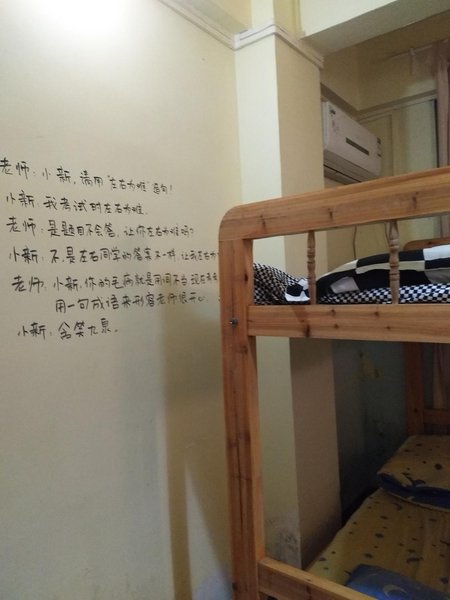 老师：小新,请用"左右为难"造句！
小新：我考试时左右为难.
老师：是题目不会答,让你左右为难吗？
小新：不是左右同学的答案不一样,让我左右为
老师：小新,你的毛病就是用词不当 现在
用一句成语来形容老师很开心.
小新：含笑九泉。